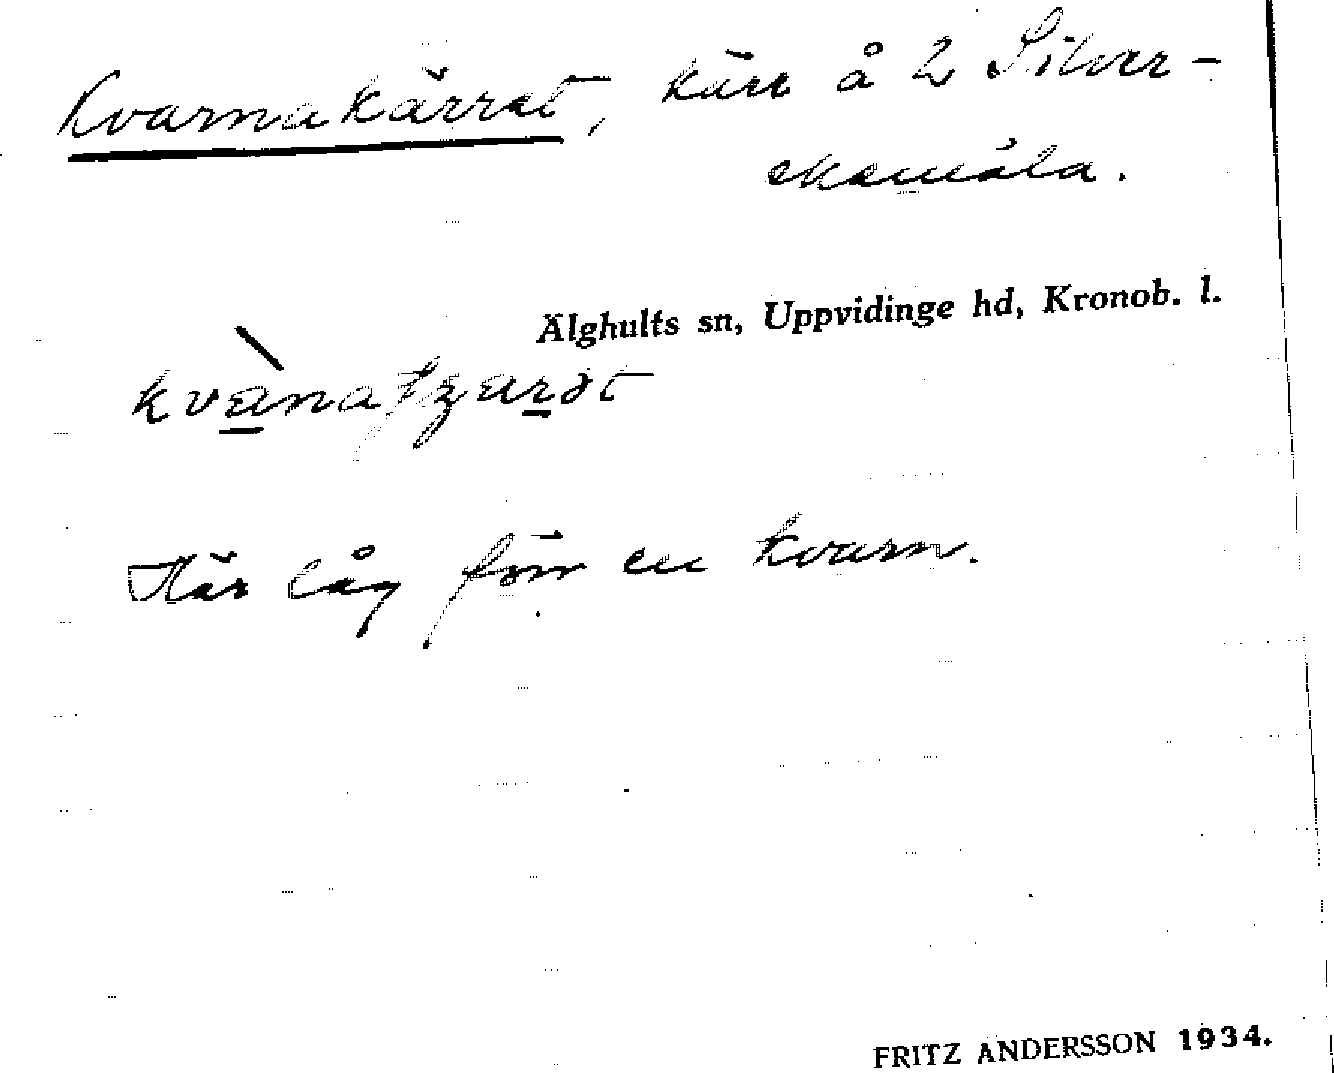 Kvarnakärret, kärr å 2 Silver-
ekemåla.
Älghults sn, Uppvidinge hd, Kronob. l.
Här låg förr en kvarn.
FRITZ ANDERSSON 1934.